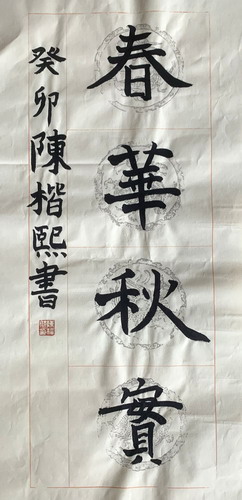 春華秋實
癸卯陳楷熙書